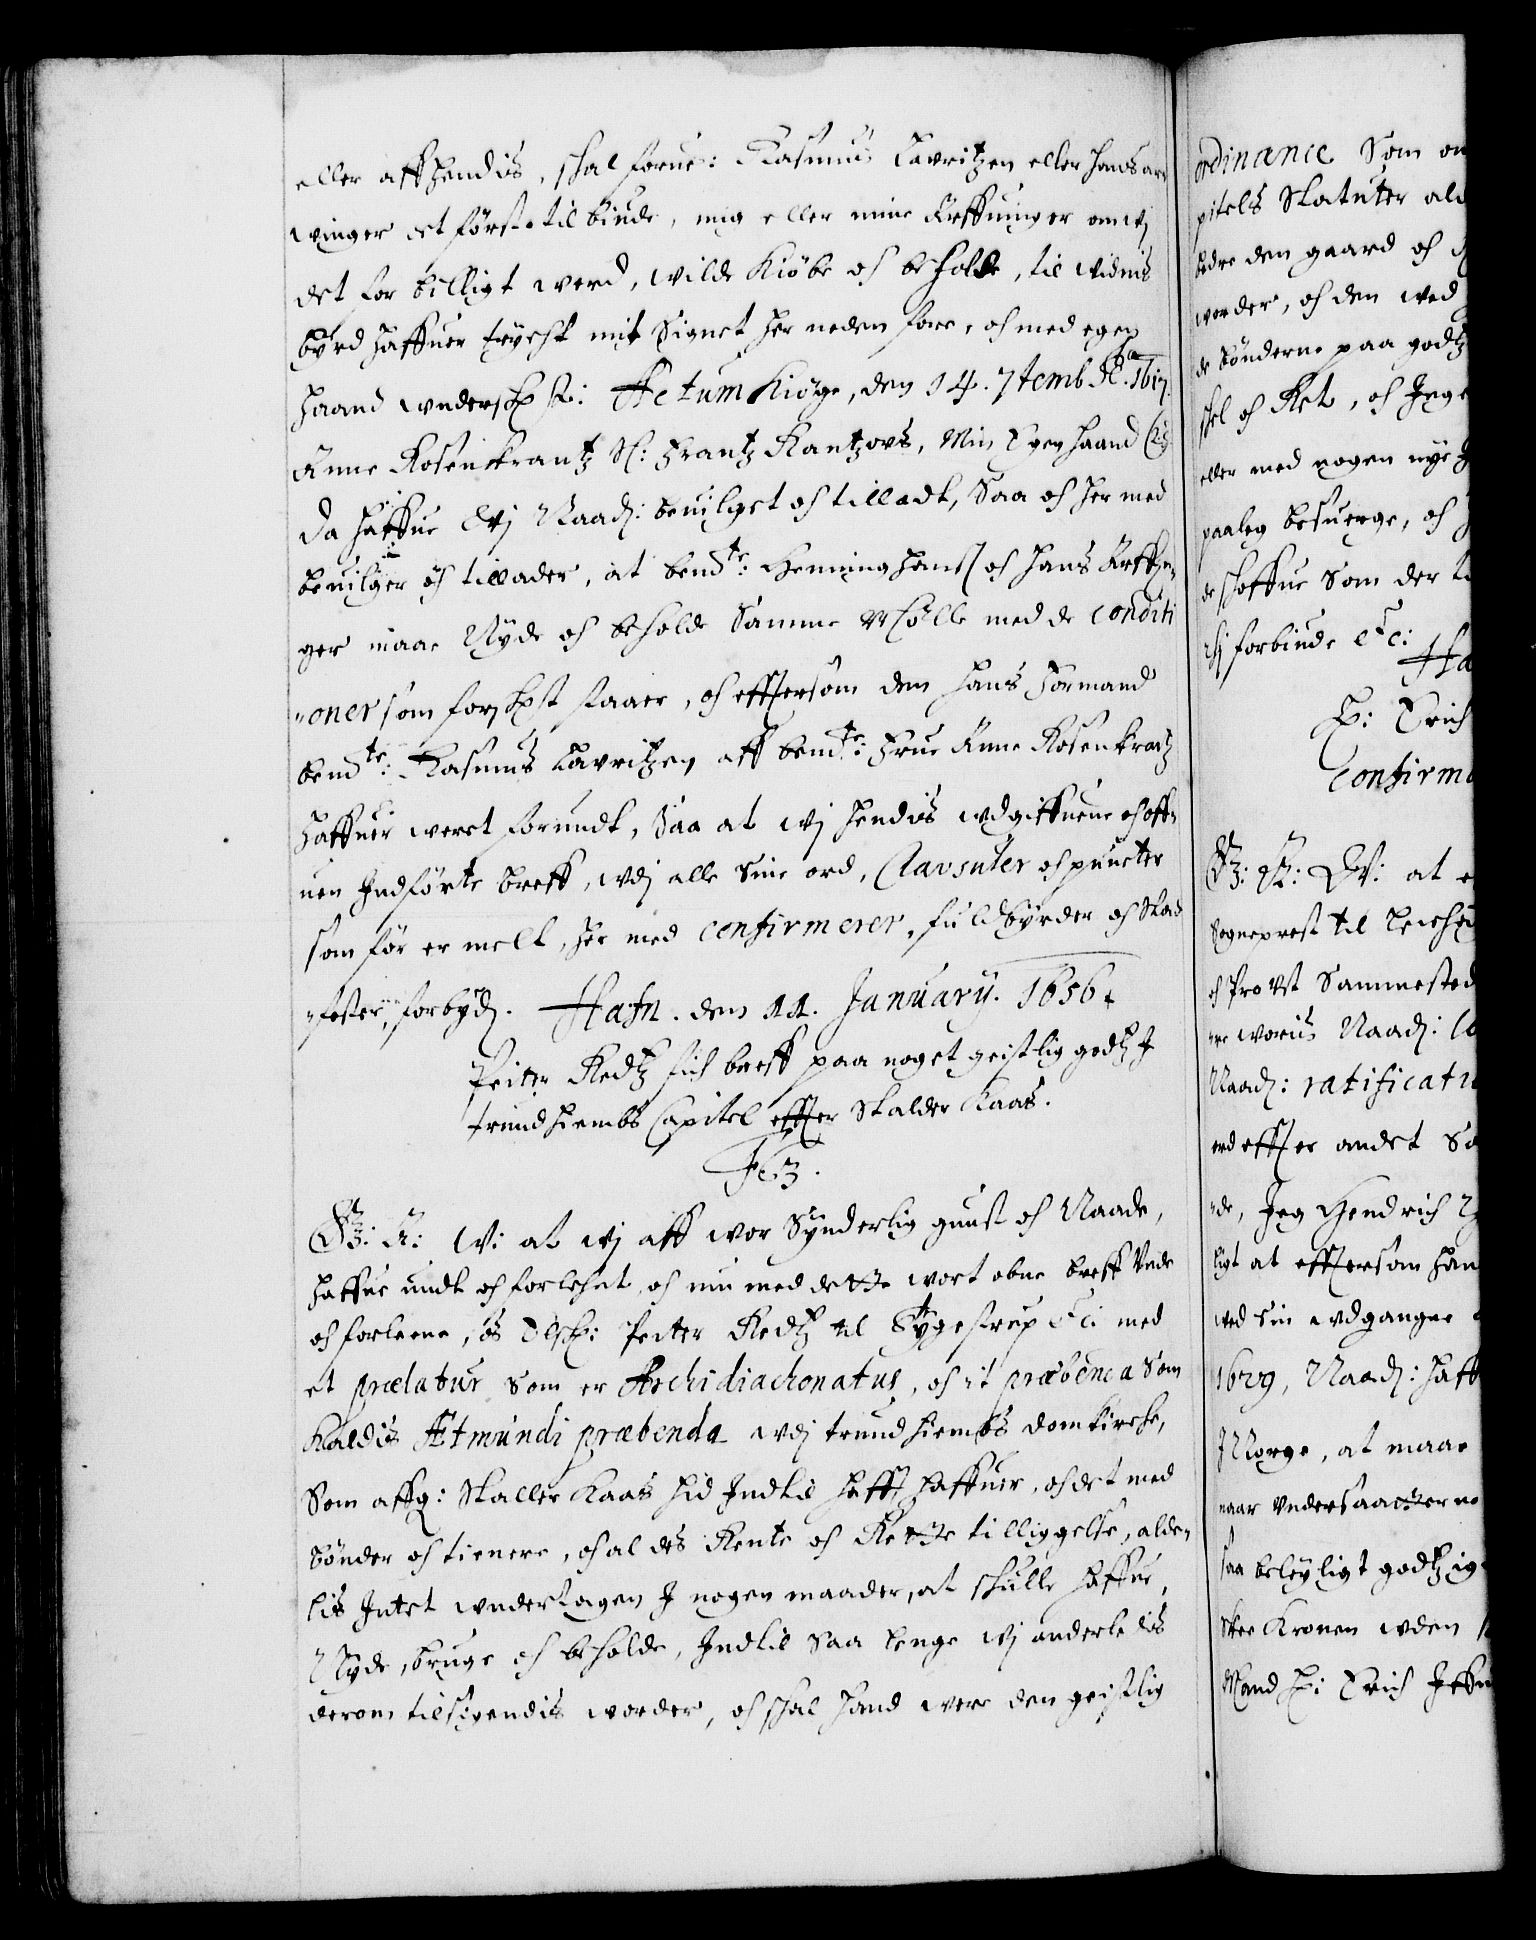 eller affhendis, skal forne: Rasmus Lavritzen eller hans ar¬
winger det første tilbiude, mig eller mine Arffuinger om wj
det for billigt werd, wilde Kiøbe oc beholde, til Vidnis
byrd haffuer trycht mit Signet her neden fore, oc med egen
haand underschr: Actum Kiøge, den 14. 7temb: Ao. 1617.
Anne Rosenkrantz Sl: Frantz Rantzovs, Min Egen haand
Da haffue Wj Naad: beuilget oc tilladt, Saa oc her med
beuilger oc tillader, at bemte: Henning hans oc hans Arffuin¬
ger maae Nyde oc beholde Samme Mølle med de Conditi
"oner som forschr staaer, oc effter som den hans Formand
bemte: Rasmus Lavritzen aff bemte: Frue Anne Rosenkrantz
haffuer weret forundt, Saa at wj hendis wdgiffuene oc offu¬
uen Indførte breff, wdj alle Sine ord, Clavsuler oc puncter
som før er melt, her med confirmerer, fuldbyrder oc Stad
"fester, forbyd. Hafn. den 11. January. 1656.
Peiter Redtz fich breff paa noget geistlig godtz J
trundhiembs Capitel effter Skalder Kaas.
F 3.
F3. G: A: W: at wj aff wor Synderlig gunst oc Naade,
haffue undt oc forlehnt, oc nu med dette wort obne breff Unde
oc forleene, os Elsch: Peiter Redtz til Tygestrup Etc: med
et prælatur som er Archidiachonatus, oc it præbenda Som
Kaldis Ætmundi præbenda wdj trundhiembs domkirche,
Som affg: Skaller Kaas hid Indtil hafft haffuer, oc det med
bønder oc tienere, oc al des Rente oc Rette tilliggelse, alde¬
lis Intet undertagen J nogen maader, at schulle haffue,
Nyde, bruge oc beholde, Indtil Saa lenge wj anderledis
derom tilsigendis worder, oc schal hand were den geistlig
ordinance Som om
pitels Statuter ald
bedre den gaard oc
worder, oc den wed
de bønderne paa godtz
skel oc Ret, oc Inge
eller med nogen nye
paaleg besuerge, oc
de schoffue Som der
forbinde Etc:
Ha
H: Erich
Confirma
G: A: W: at
Sogneprest til
oc Provst Sammested
Naad:
Naad: ratificati
ord effter andet
de, Jeg Hendrich
ligt at effterson han
wed Sin wdgangne
1629, Naad: haff
J Norge, at maae
naar undersaatter
saa beleyligt godtz
Skee Kronen uden
Mand H: Erich